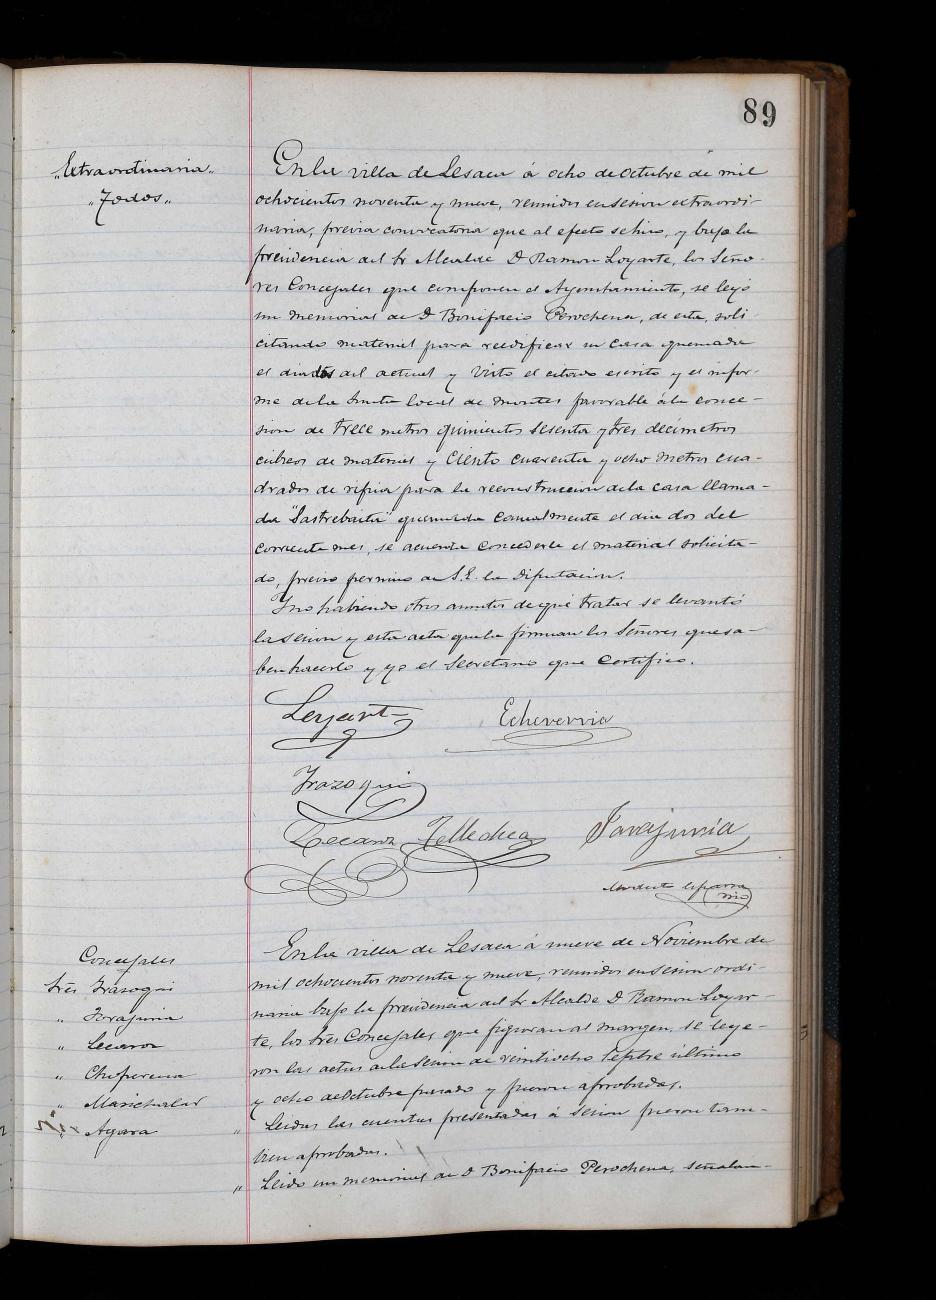 89
"Extraordinaria"
"Todos"
En la villa de Lesaca á ocho de Octubre de mil
ochocientos noventa y nueve, reunidos en sesion extraordi-
naria, previa convocatoria que al efecto se hizo, y bajo la
presidencia del Sr Alcalde D Ramon Loyarte, los Seño-
res Concejales que componen el Ayuntamiento, se leyó
un memorial de D Bonifacio Perochena, de esta, soli-
citando material para reedificar su casa quemada
el dia dos del actual y visto el citado escrito y el infor-
me de la Junta local de montes favorable á la conce-
sion de trece metros quinientos sesenta y tres decimetros
cúbicos de material y ciento cuarenta y ocho metros cua-
drados de ripia para la reconstruccion de la casa llama-
da "Sastrebaita" quemada casualmente el dia dos del
corriente mes, se acuerda concederle el material solicita-
do, previo permiso de S.E. la Diputacion.
Y no habiendo otros asuntos de que tratar se levantó
la sesion y esta acta que la firman los Señores que sa-
ben hacerlo y yo el Secretario que certifico.
Loyarte
Echeverria
Irazoqui
Lecaroz Tellechea
Tarajuria
Modesto Esparza
Srio
Concejales
Sres Irazoqui
" Tarajuria
" Lecaroz
" Choperena
" Marichalar
" Agara
En la villa de Lesaca á nueve de Noviembre de
mil ochocientos noventa y nueve, reunidos en sesion ordi-
naria bajo la presidencia del Sr Alcalde D Ramon Loyar-
te, los Sres Concejales, que figuran al margen, se leye-
ron las actas de la sesion de veintiocho Septbre último
y ocho de Octubre pasado y fueron aprobadas.
" Leidas las cuentas presentadas á sesion fueron tam-
bien aprobadas.
" Leido un memorial de D Bonifacio Perochena, señalan-